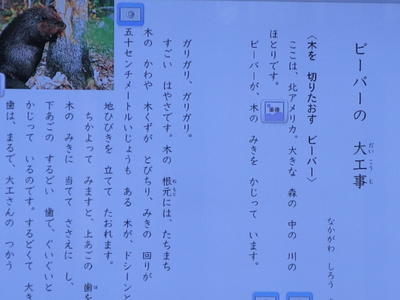 ビーバーの 大工事
だいこうじ
なかがわ しろう
〈木を 切りたおす ビーバー〉
ここは、北アメリカ。大きな 森の 中の 川の
ほとりです。
ビーバーが、木の みきを かじって います。
ガリガリ、ガリガリ。
すごい はやさです。木の 根元には、たちまち
ねもと
木の かわや 木くずが とびちり、みきの 回りが
五十センチメートルいじょうも ある 木が、ドシーンと
地ひびきを 立てて たおれます。
ちかよって みますと、上あごの 歯を
は
木の みきに 当てて ささえに し、
下あごの するどい 歯で、ぐいぐいと
かじって いるのです。するどくて 大き
歯は、まるで、大工さんの つかう